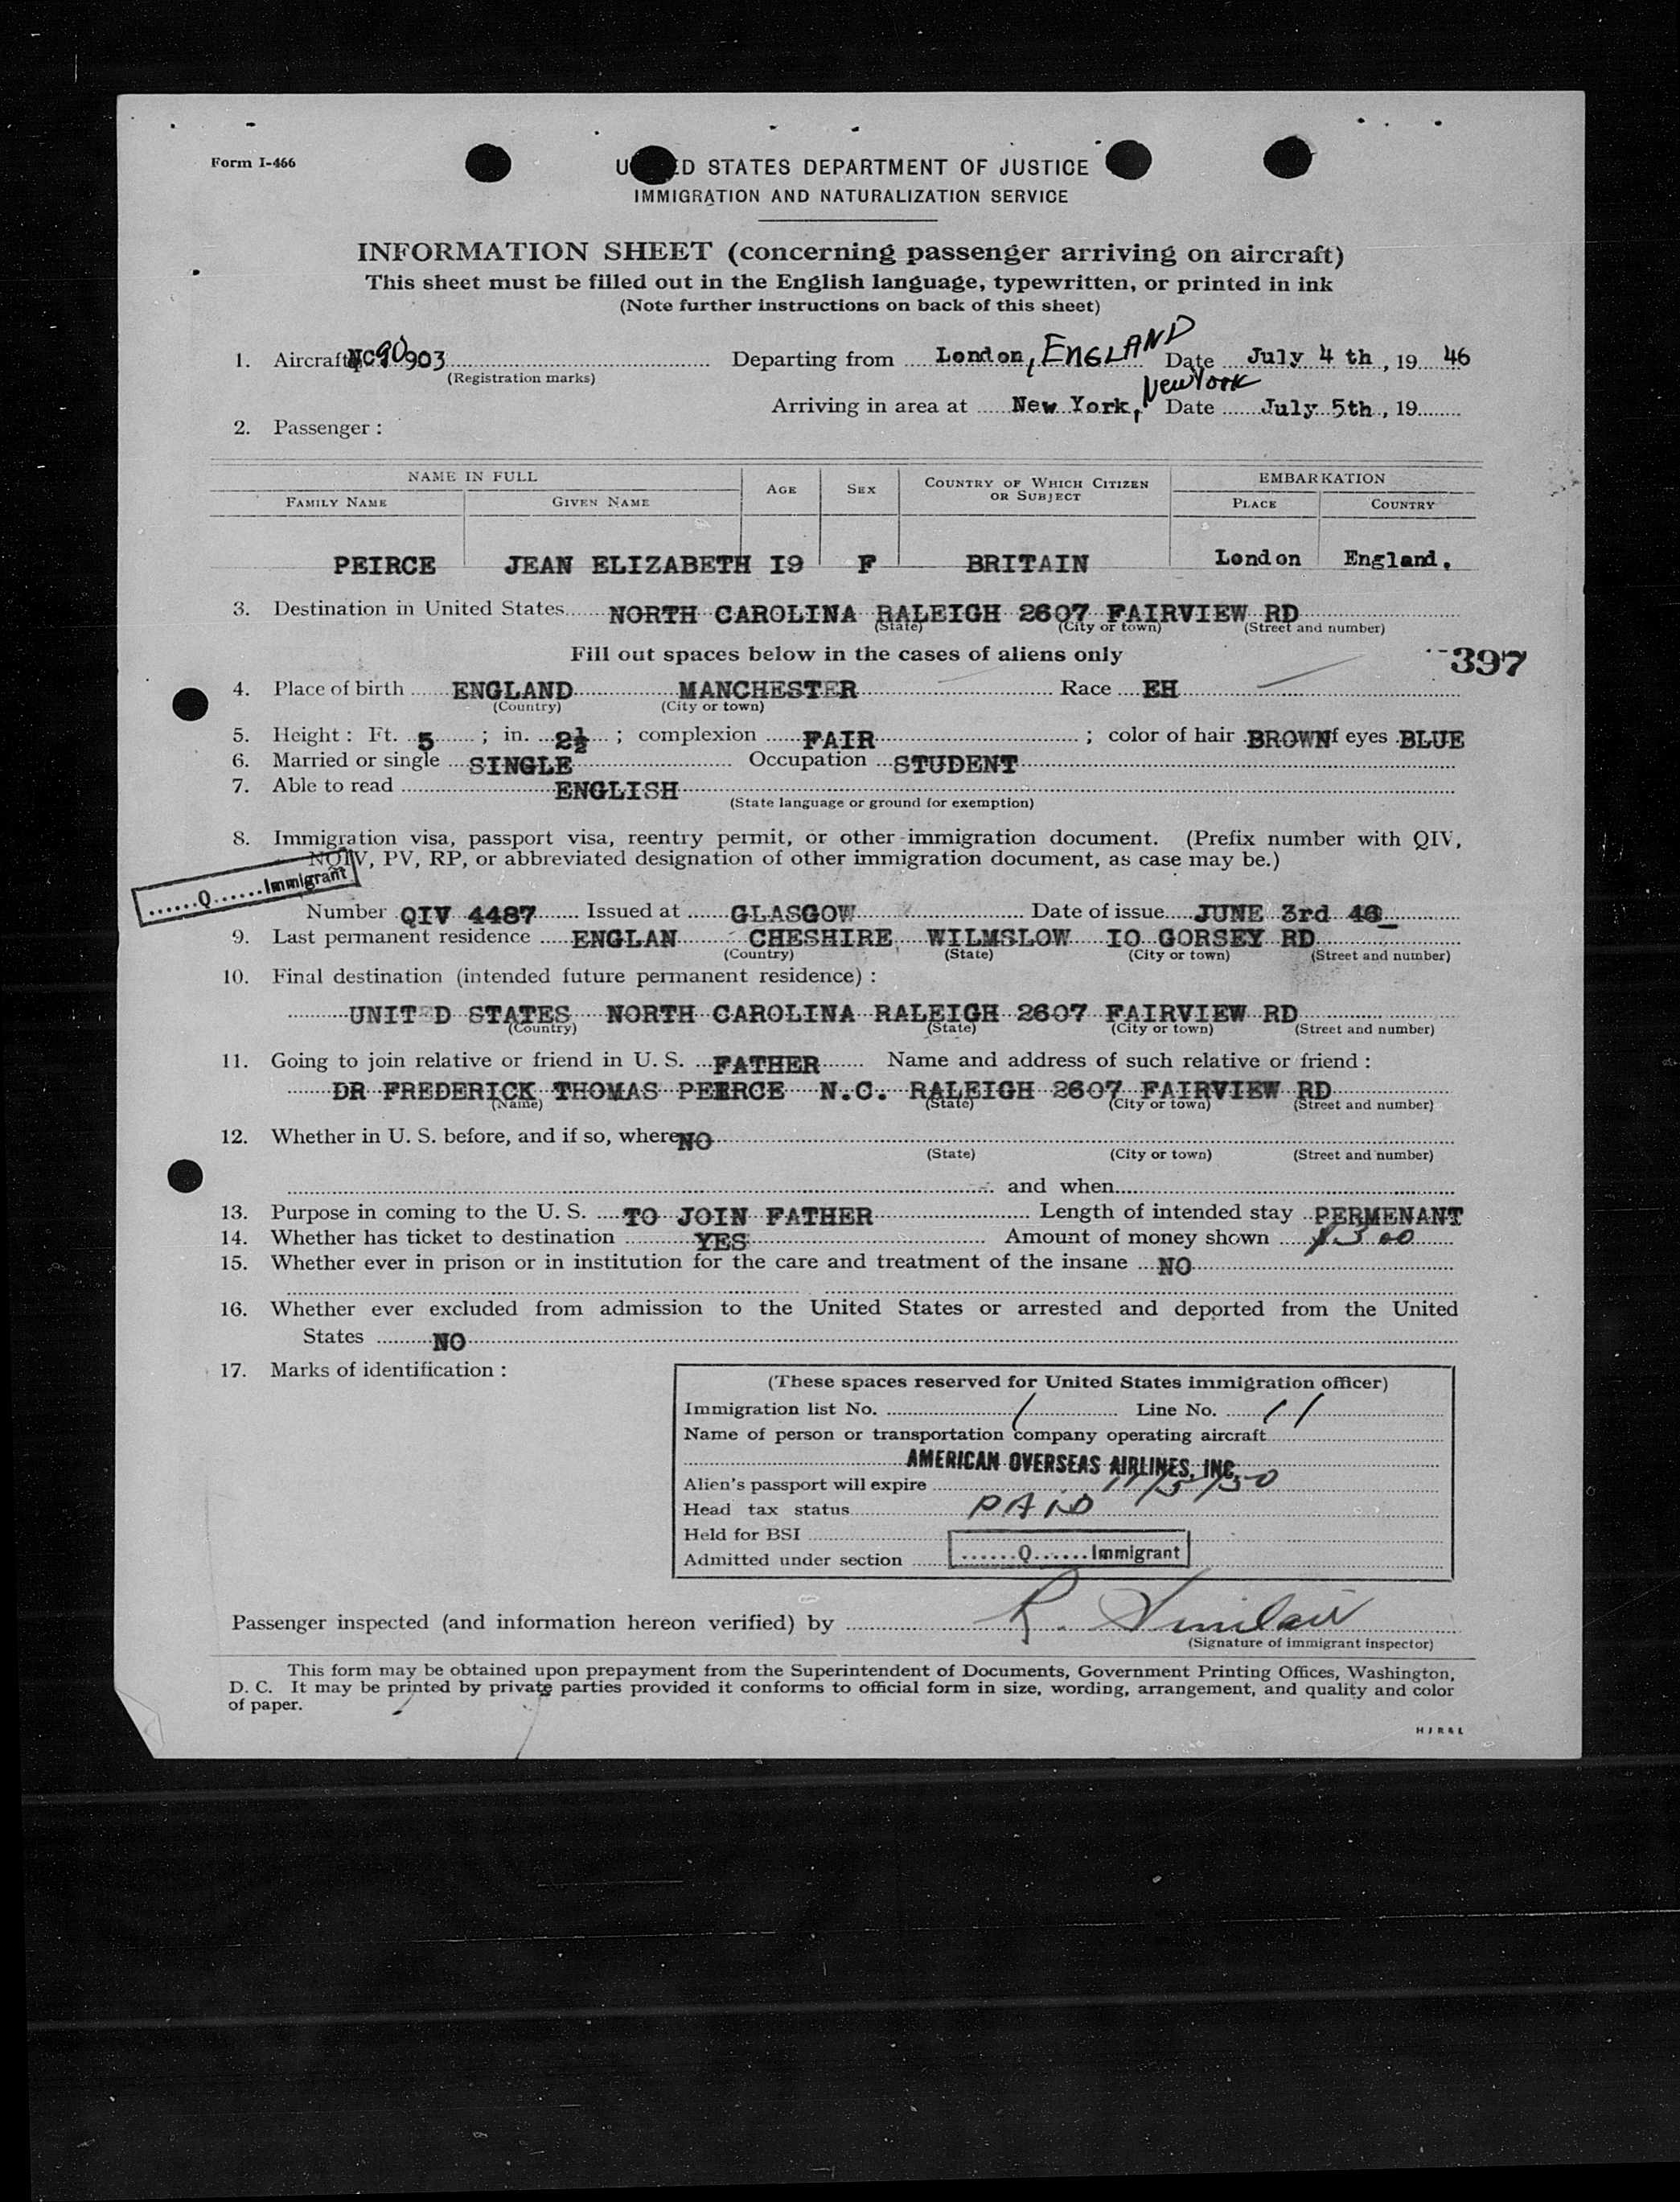 Form I-466
UNITED STATES DEPARTMENT OF JUSTICE
IMMIGRATION AND NATURALIZATION SERVICE
INFORMATION SHEET (concerning passenger arriving on aircraft)
This sheet must be filled out in the English language, typewritten, or printed in ink
(Note further instructions on back of this sheet)
1. Aircraft NC 90903 Departing from London, ENGLAND Date July 4 th, 19 46
(Registration marks)
Arriving in area at New York, New York Date July 5th, 19
2. Passenger:
NAME IN FULL AGE SEX COUNTRY OF WHICH CITIZEN OR SUBJECT EMBARKATION
FAMILY NAME GIVEN NAME PLACE COUNTRY
PEIRCE JEAN ELIZABETH I9 F BRITAIN London England.
3. Destination in United States NORTH CAROLINA RALEIGH 2607 FAIRVIEW RD
(State) (City or town) (Street and number)
Fill out spaces below in the cases of aliens only
397
4. Place of birth ENGLAND MANCHESTER Race EH
(Country) (City or town)
5. Height: Ft. 5; in. 2½; complexion FAIR; color of hair BROWN f eyes BLUE
6. Married or single SINGLE Occupation STUDENT
7. Able to read ENGLISH
(State language or ground for exemption)
8. Immigration visa, passport visa, reentry permit, or other immigration document. (Prefix number with QIV,
NQIV, PV, RP, or abbreviated designation of other immigration document, as case may be.)
......Q......Immigrant
Number QIV 4487 Issued at GLASGOW Date of issue JUNE 3rd 46
9. Last permanent residence ENGLAN CHESHIRE WILMSLOW IO GORSEY RD
(Country) (State) (City or town) (Street and number)
10. Final destination (intended future permanent residence):
UNIT D STATES NORTH CAROLINA RALEIGH 2607 FAIRVIEW RD
(Country) (State) (City or town) (Street and number)
11. Going to join relative or friend in U. S. FATHER Name and address of such relative or friend:
DR FREDERICK THOMAS PEIRCE N.C. RALEIGH 2607 FAIRVIEW RD
(Name) (State) (City or town) (Street and number)
12. Whether in U. S. before, and if so, where NO
(State) (City or town) (Street and number)
and when
13. Purpose in coming to the U. S. TO JOIN FATHER Length of intended stay PERMENANT
14. Whether has ticket to destination YES Amount of money shown
15. Whether ever in prison or in institution for the care and treatment of the insane NO
16. Whether ever excluded from admission to the United States or arrested and deported from the United
States NO
17. Marks of identification:
(These spaces reserved for United States immigration officer)
Immigration list No. 1 Line No. 11
Name of person or transportation company operating aircraft
AMERICAN OVERSEAS AIRLINES, INC.
Alien's passport will expire 11/5/50
Head tax status PAID
Held for BSI
Admitted under section ......Q......Immigrant
Passenger inspected (and information hereon verified) by R. Sinclair
(Signature of immigrant inspector)
This form may be obtained upon prepayment from the Superintendent of Documents, Government Printing Offices, Washington,
D. C. It may be printed by private parties provided it conforms to official form in size, wording, arrangement, and quality and color
of paper.